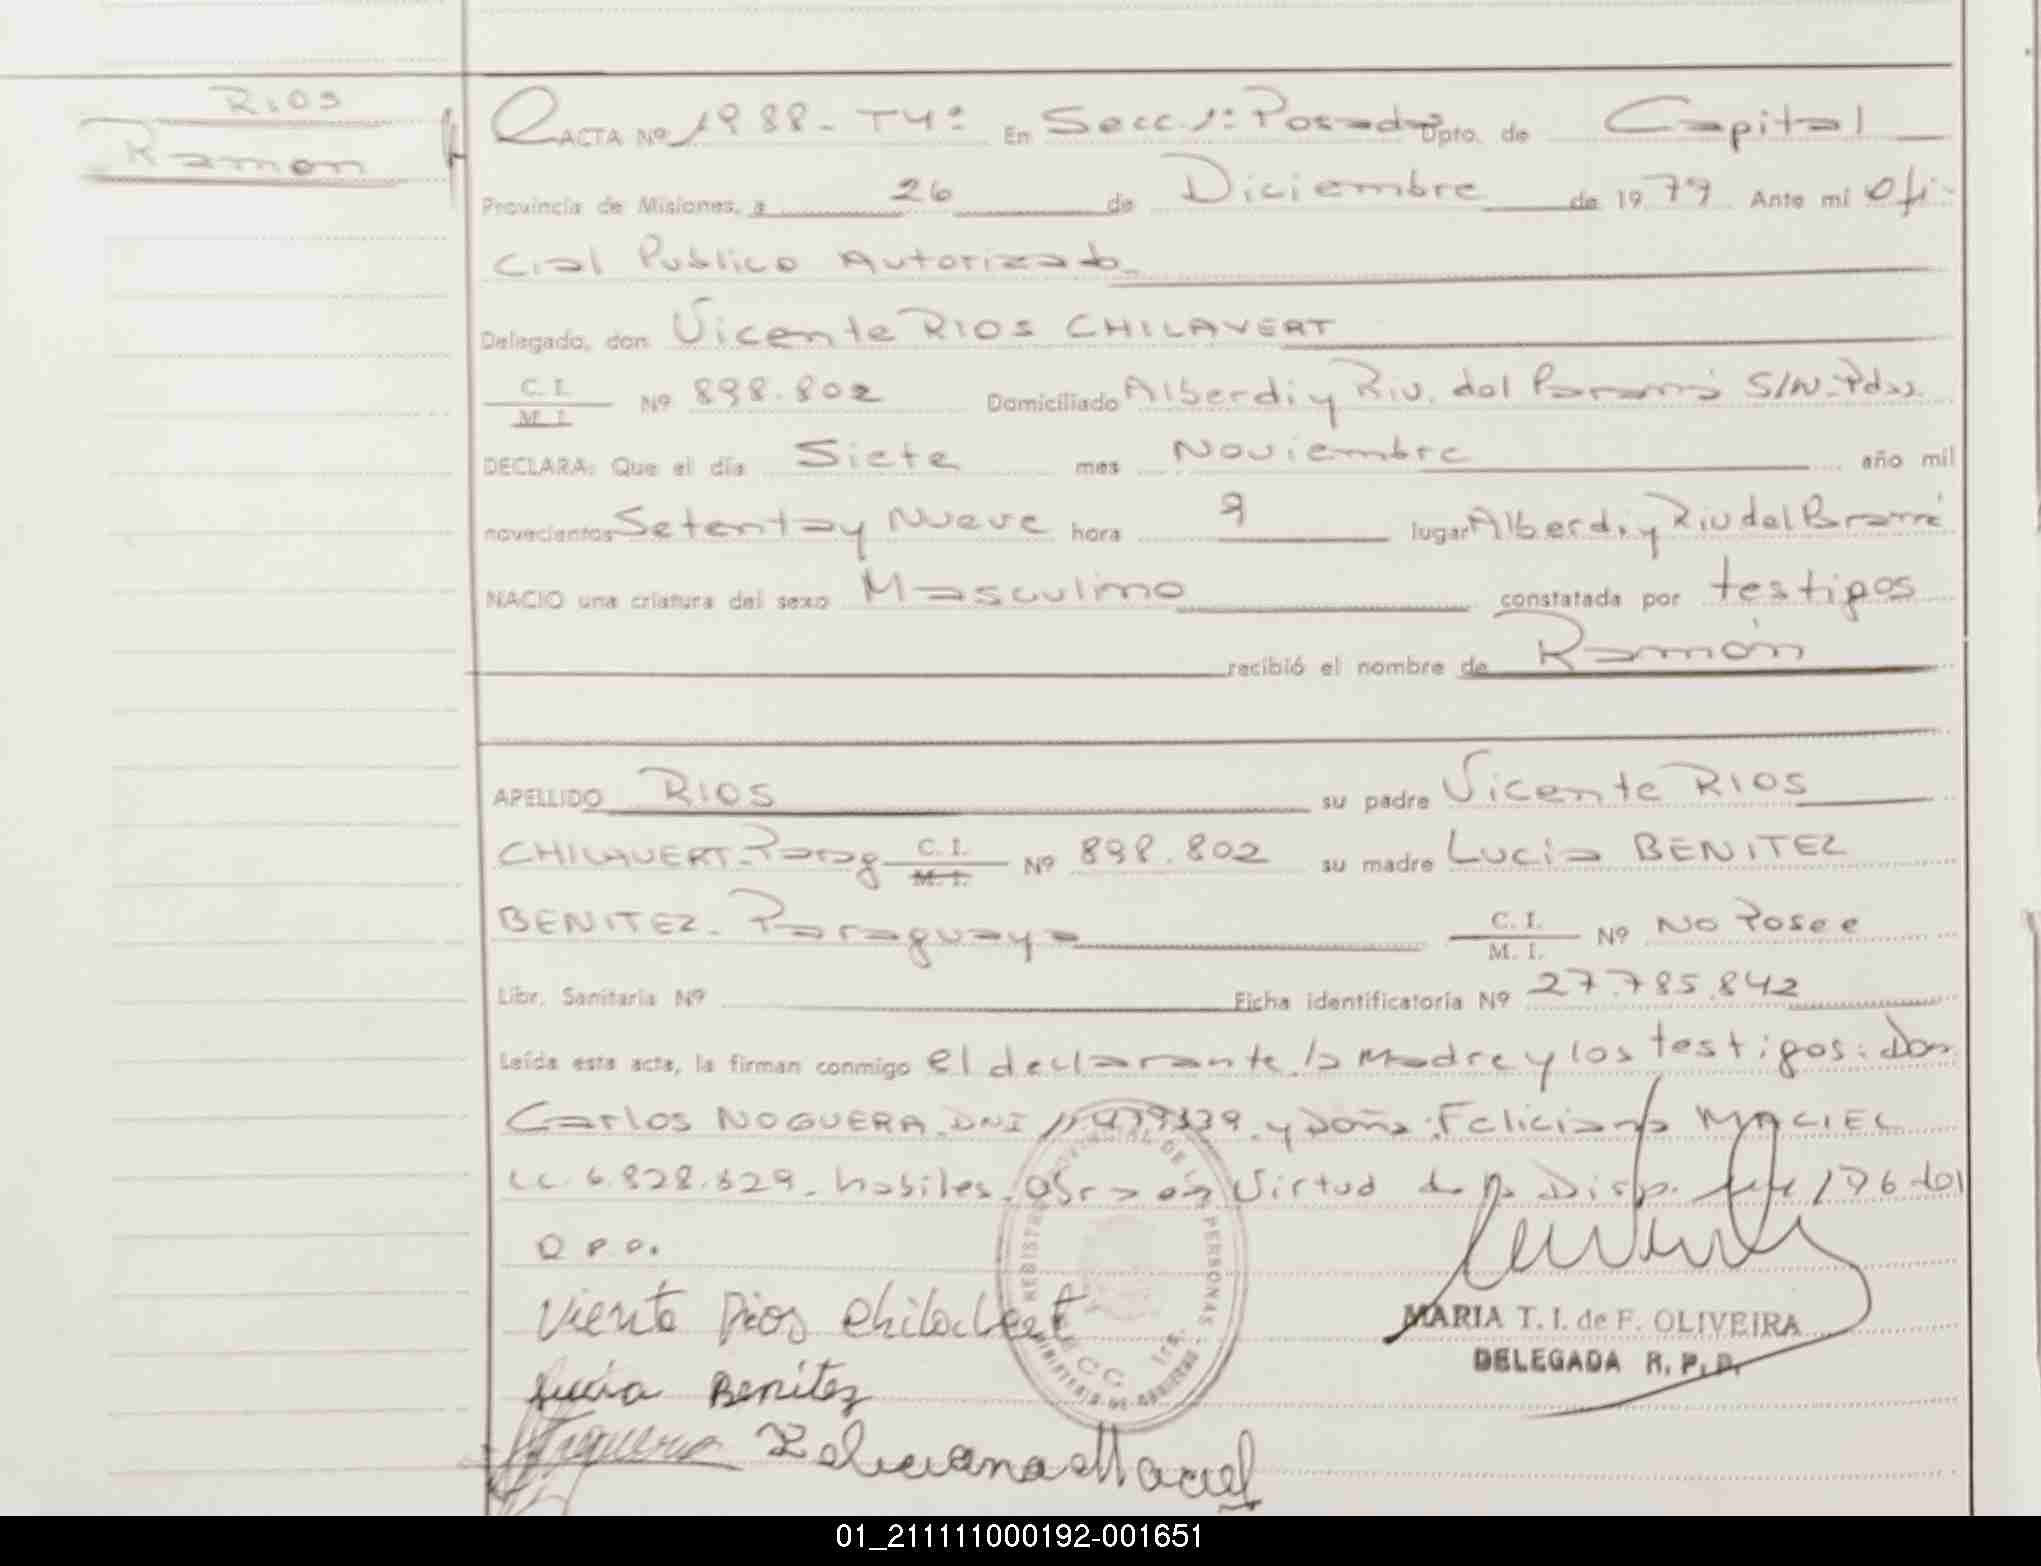 RIOS
Ramon
ACTA Nº 1988 - T4º En Secc. 1º Posadas Dpto. de Capital
Provincia de Misiones, a 26 de Diciembre de 1979 Ante mi Ofi-
cial Publico Autorizado
Delegado, don Vicente RIOS CHILAVERT
C. I. / M. I. Nº 898.802 Domiciliado Alberdi y Riv. del Paraná S/N - Pdas.
DECLARA: Que el día Siete mes Noviembre año mil
novecientos Setenta y Nueve hora 9 lugar Alberdi y Riv del Paraná
NACIO una criatura del sexo Masculino constatada por testigos
recibió el nombre de Ramón
APELLIDO RIOS su padre Vicente RIOS
CHILAVERT - Parag C. I. / M. I. Nº 898.802 su madre Lucia BENITEZ
BENITEZ - Paraguaya C. I. / M. I. Nº No Posee
Libr. Sanitaria Nº Ficha identificatoria Nº 27.785.842
Leída esta acta, la firman conmigo el declarante, la Madre y los testigos: Don
Carlos NOGUERA, DNI y Doña: Feliciana MACIEL
LC. 6.828.329 - habiles. Obra en Virtud de la Disp. 176 del
R P P.
Viente Rios Chilavert
Lucia Benitez
Noguera Feliciana Maciel
REGISTRO PROVINCIAL DE LAS PERSONAS
MARIA T. I. de F. OLIVEIRA
DELEGADA R. P. P.
01_211111000192-001651